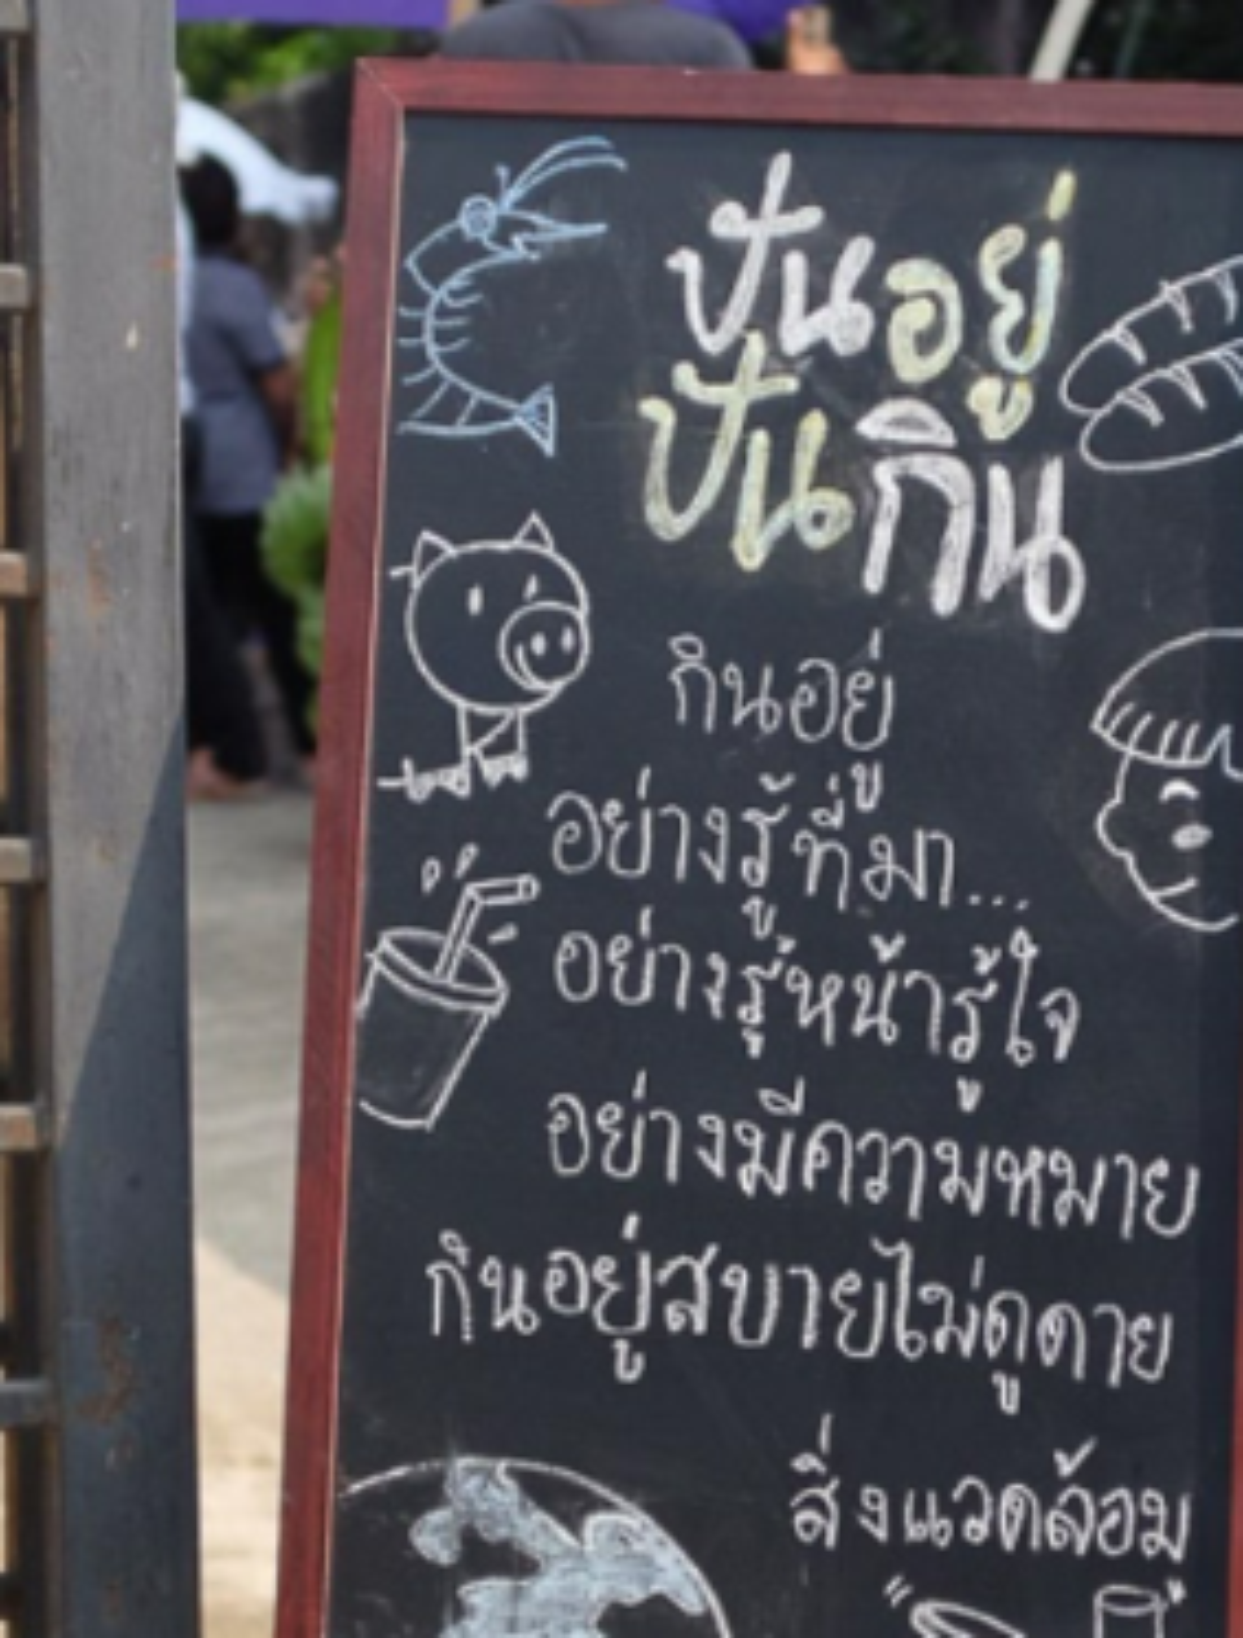 ปันอยู่
ปันกิน
กินอยู่
อย่างรู้ที่มา...
อย่างรู้หน้ารู้ใจ
อย่างมีความหมาย
กินอยู่สบายไม่ดูดาย
สิ่งแวดล้อม